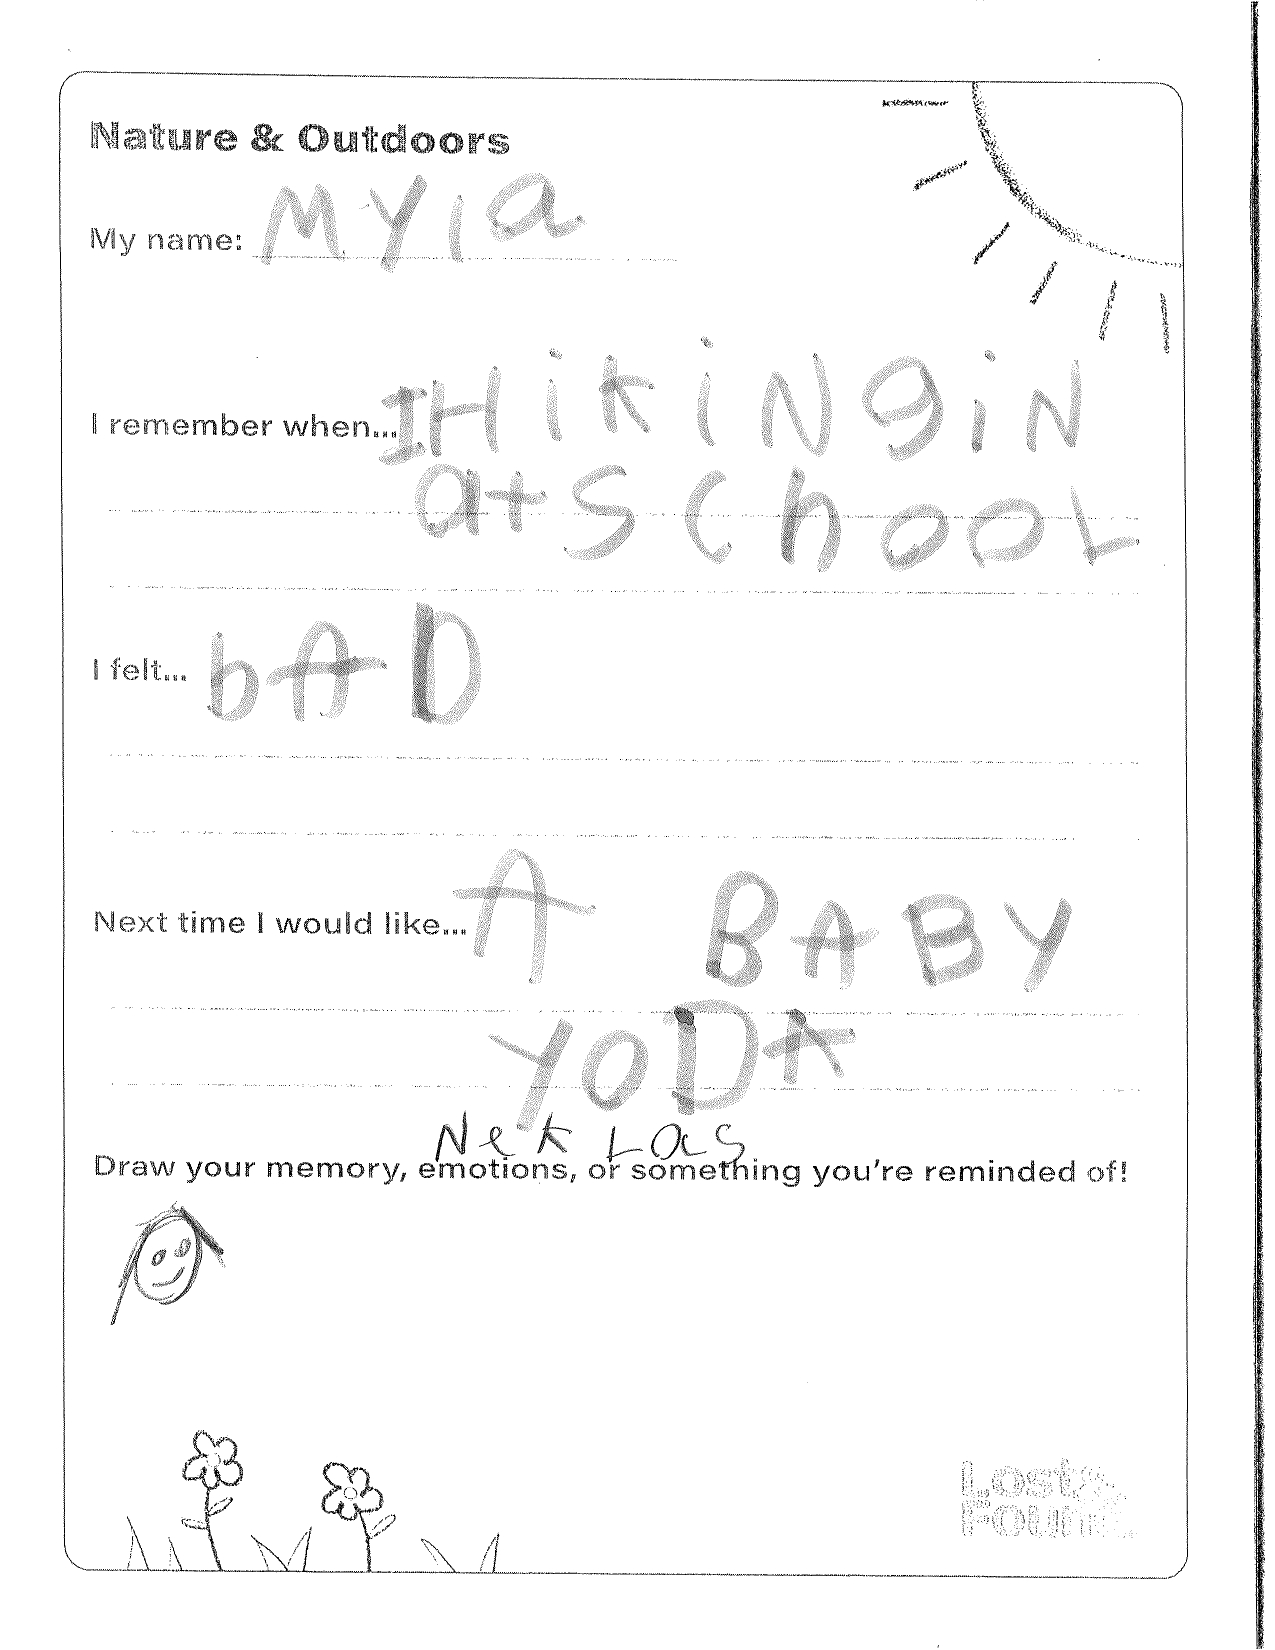 Nature & Outdoors
My name: MYia
I remember when... I HikiNgiN
at SchooL
I felt... bAD
Next time I would like... A BABY
YODA
Nek Las
Draw your memory, emotions, or something you're reminded of!
Lost &
Found